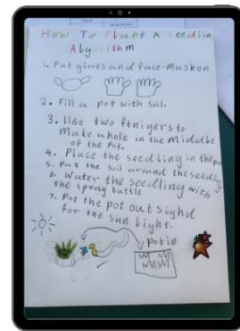 How To Plant A Seedlin
Algorithm
1. Put gloves and face-Mask on
2. Fill a pot with Soil.
3. Use two ftnigers to
make a hole in the middle
of the Pot.
4. Place the seedling in the pot
5. Put the soil around the seedling
6. Water the seedlling with
the spray bottle
7. Put the pot out sighd
for the sun light.
Pot in